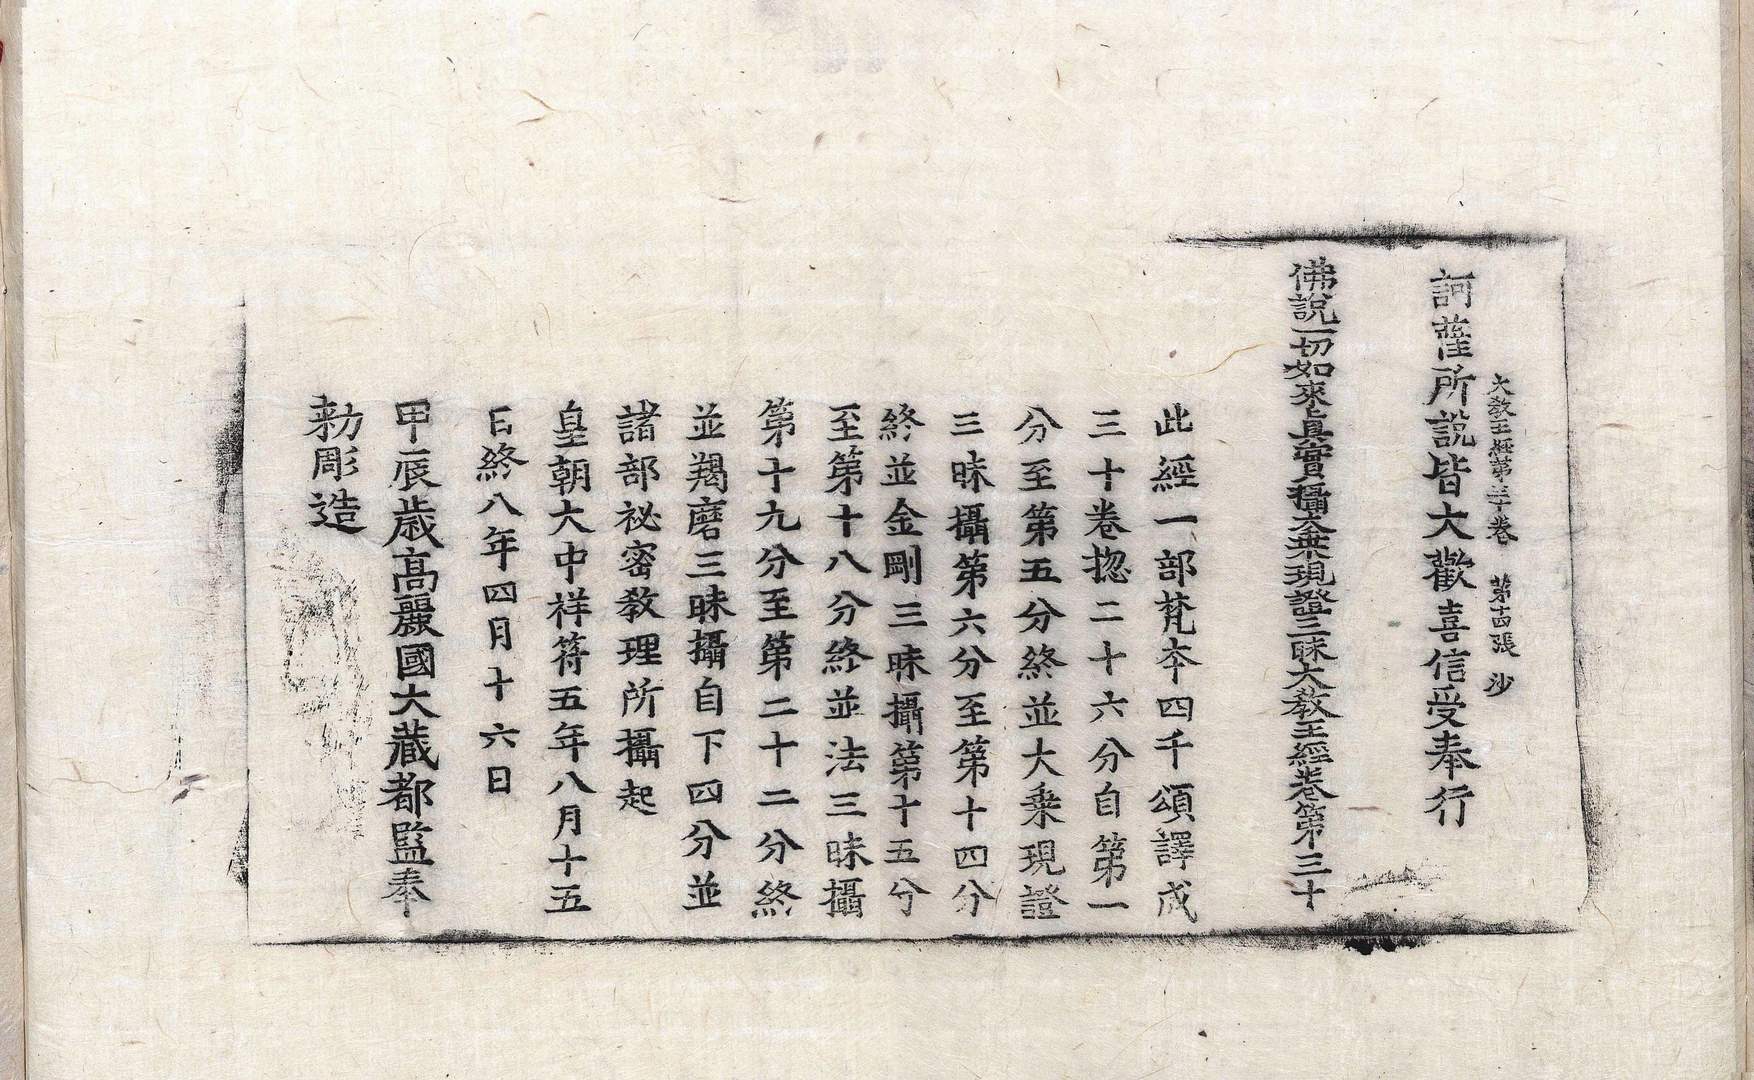 大教王經第三十卷　第十四張　沙
訶薩所說皆大歡喜信受奉行
佛說一切如來真實攝大乗現證三昧大教王經卷第三十
此經一部梵夲四千頌譯成
三十卷揔二十六分自第一
分至第五分終並大乗現證
三昧攝第六分至第十四分
終並金剛三昧攝第十五分
至第十八分終並法三昧攝
第十九分至第二十二分終
並羯磨三昧攝自下四分並
諸部祕密教理所攝起
皇朝大中祥符五年八月十五
日終八年四月十六日
甲辰歲高麗國大藏都監奉
勑彫造